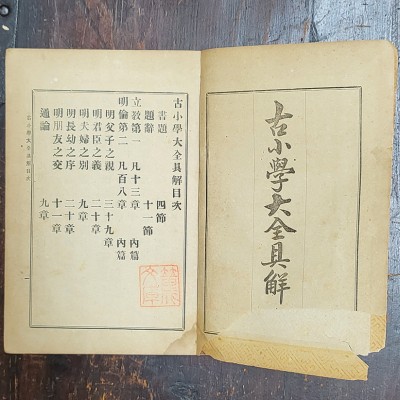 古小學大全具解
古小學大全具解目次
書題 四節
題辭 十一節
立教第一 凡十三章 內篇
明倫第二 凡百八章 內篇
明父子之親 三十九章
明君臣之義 二十章
明夫婦之別 九章
明長幼之序 二十章
明朋友之交 十一章
通論 九章